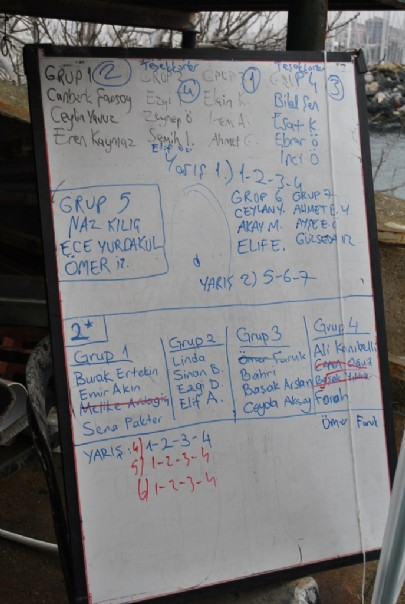 Teşekkürler Teşekkürler
GRUP 1 2 GRUP 4 GRUP 1 GRUP 4 3
Canberk Ezgi Elçin K. Bilal Şen
Ceylin Yavuz Zeynep Ö İrem A. Esat K.
Eren Kaymaz Semih İ. Ahmet Ebrar Ö
Elif İnci Ö
Yarış 1.) 1-2-3-4
GRUP 5
NAZ KILIÇ
ECE YURDAKUL
ÖMER
GRUP 6 GRUP 7
CEYLAN Y. AHMET E.
AKAY M. AYŞE E.
ELİF E.
YARIŞ 2) 5-6-7
2*
Grup 1 Grup 2 Grup 3 Grup 4
Burak Ertekin Linda Ömer Faruk Ali
Emir Akın Sinan B. Bahri
Melike Ezgi D. Başak Arslan Başak
Sena Elif A. Aksoy Farah
Ömer Faruk
YARIŞ: 4) 1-2-3-4
5) 1-2-3-4
6) 1-2-3-4